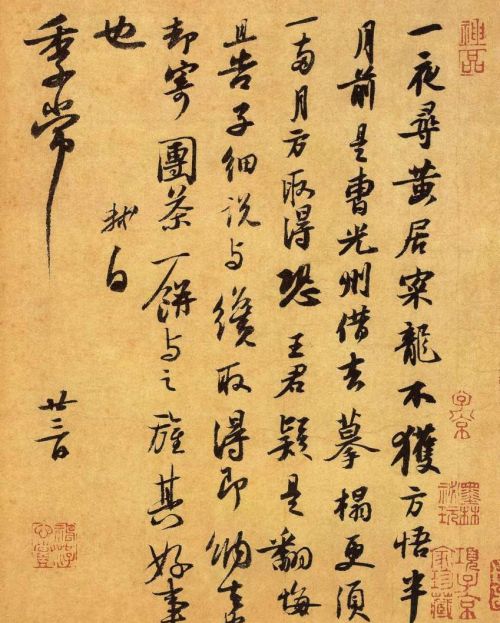 一夜尋黃居寀龍不獲方悟半
月前是曹光州借去摹搨更須
一兩月方取得恐王君疑是翻悔
且告子細說與纔取得即納去
却寄團茶一餅與之旌其好事
也
軾白
季常
廿三日
神品
子京
墨林祕玩
項子京家珍藏